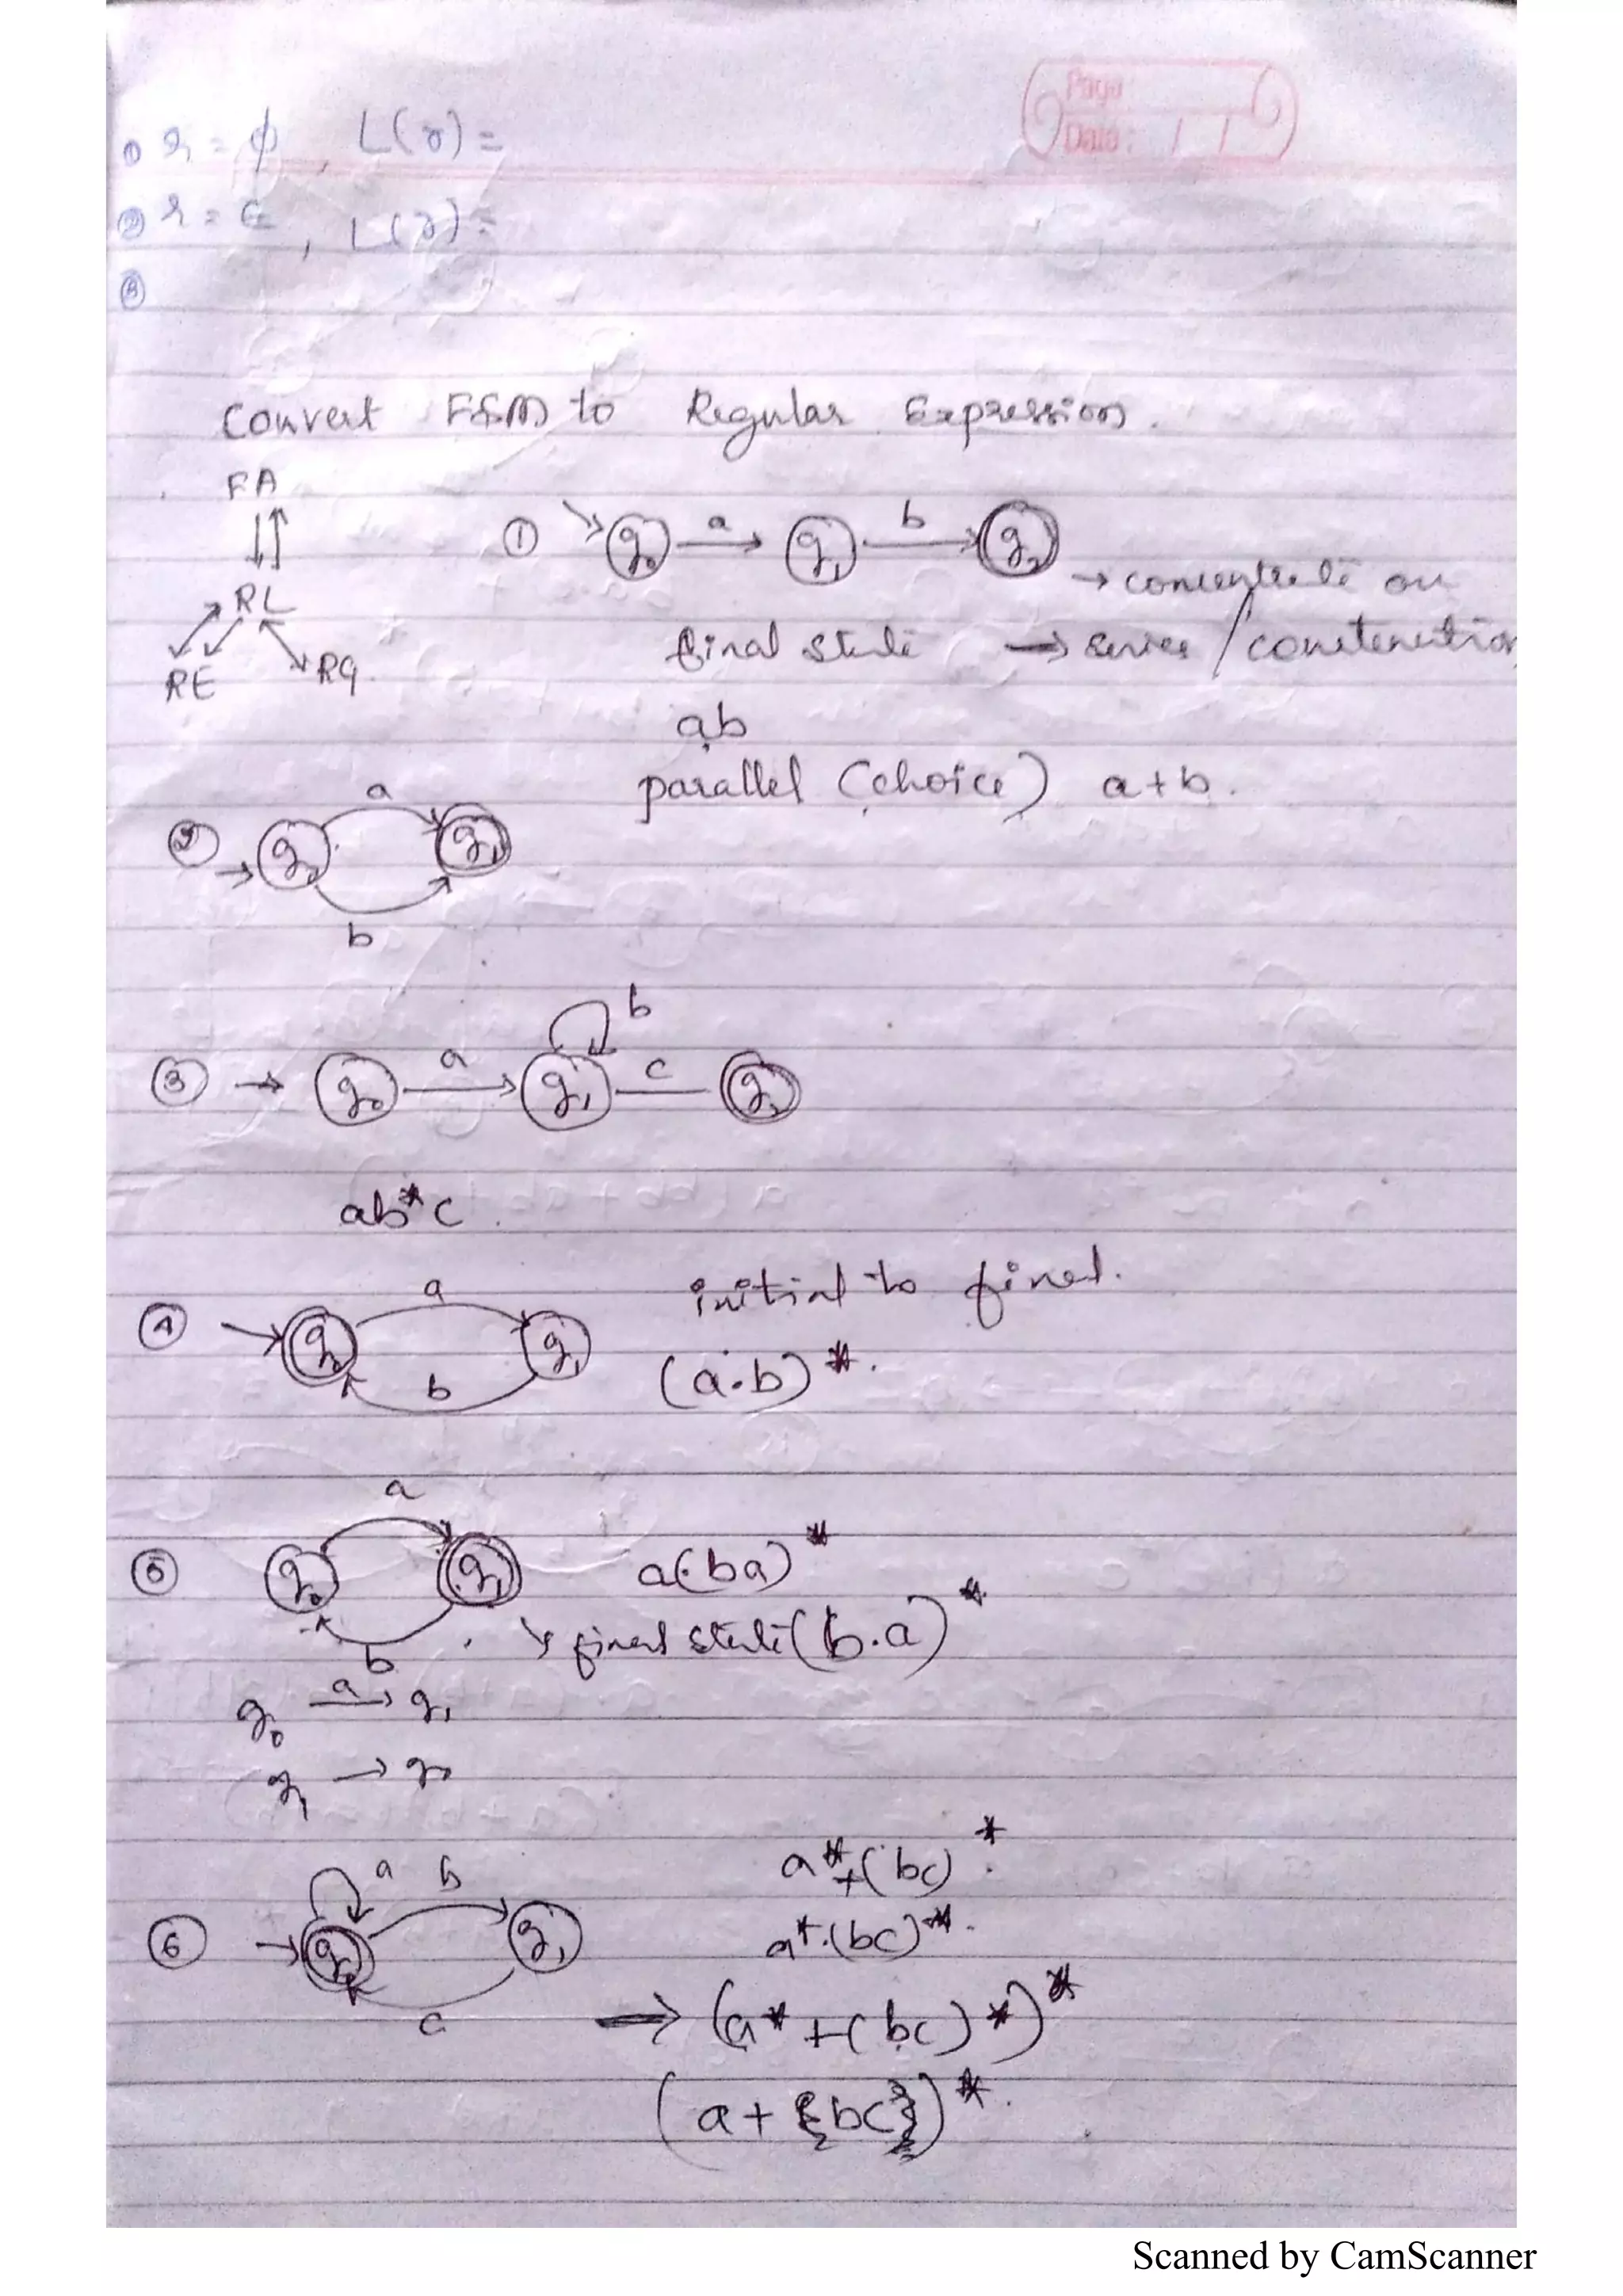 Page
Date: / /
① r = φ , L(r) =
② r = ∈ , L(r) =
③
Convert FSM to Regular Expression.
FA
① q0 a q1 b q2
→ concentrate on
RL
final state → series /
RE RG
ab
parallel (choice) a+b.
② q0 a q1
b
③ → q0 a q1 b c q2
ab*c
④ q0 a q1 b
initial to final.
(a.b)*.
⑤ q0 a q1 b
a(ba)*
final state (b.a)*
q0 a→ q1
q1 → q0
⑥ → q0 a b q1 c
a*+(bc)*.
a*.(bc)*.
→ (a*+(bc)*)*
(a+{bc})*.
Scanned by CamScanner